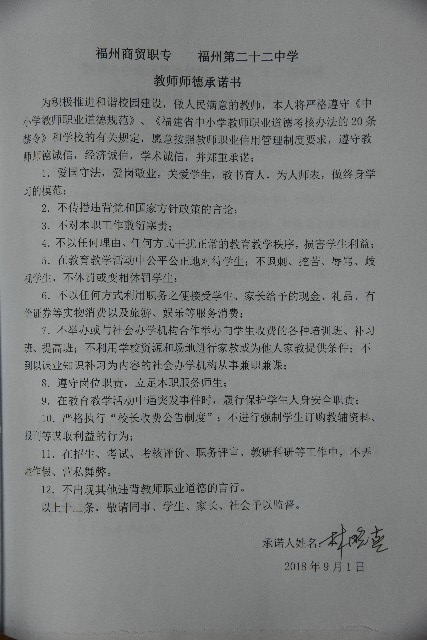 福州商贸职专　　福州第二十二中学
教师师德承诺书
为积极推进和谐校园建设，做人民满意的教师，本人将严格遵守《中
小学教师职业道德规范》、《福建省中小学教师职业道德考核办法的 20 条
禁令》和学校的有关规定，愿意按照教师职业信用管理制度要求，遵守教
师师德诚信，经济诚信，学术诚信，并郑重承诺：
1．爱国守法，爱岗敬业，关爱学生，教书育人，为人师表，做终身学
习的模范；
2．不传播违背党和国家方针政策的言论；
3．不对本职工作敷衍塞责；
4．不以任何理由、任何方式干扰正常的教育教学秩序，损害学生利益；
5．在教育教学活动中公平公正地对待学生；不讽刺、挖苦、辱骂、歧
视学生，不体罚或变相体罚学生；
6．不以任何方式利用职务之便接受学生、家长给予的现金、礼品、有
价证券等实物消费以及旅游、娱乐等服务消费；
7．不举办或与社会办学机构合作举办向学生收费的各种培训班、补习
班、提高班；不利用学校资源和场地进行家教或为他人家教提供条件；不
到以课业知识补习为内容的社会办学机构从事兼职兼课；
8．遵守岗位职责，立足本职服务师生；
9．在教育教学活动中遇突发事件时，履行保护学生人身安全职责；
10．严格执行“校长收费公告制度”；不进行强制学生订购教辅资料、
报刊等谋取利益的行为；
11．在招生、考试、考核评价、职务评言，教研科研等工作中，不弄
虚作假、营私舞弊。
12．不出现其他违背教师职业道德的言行。
以上十二条，敬请同事、学生、家长、社会予以监督。
承诺人姓名：林
2018 年 9 月 1 日